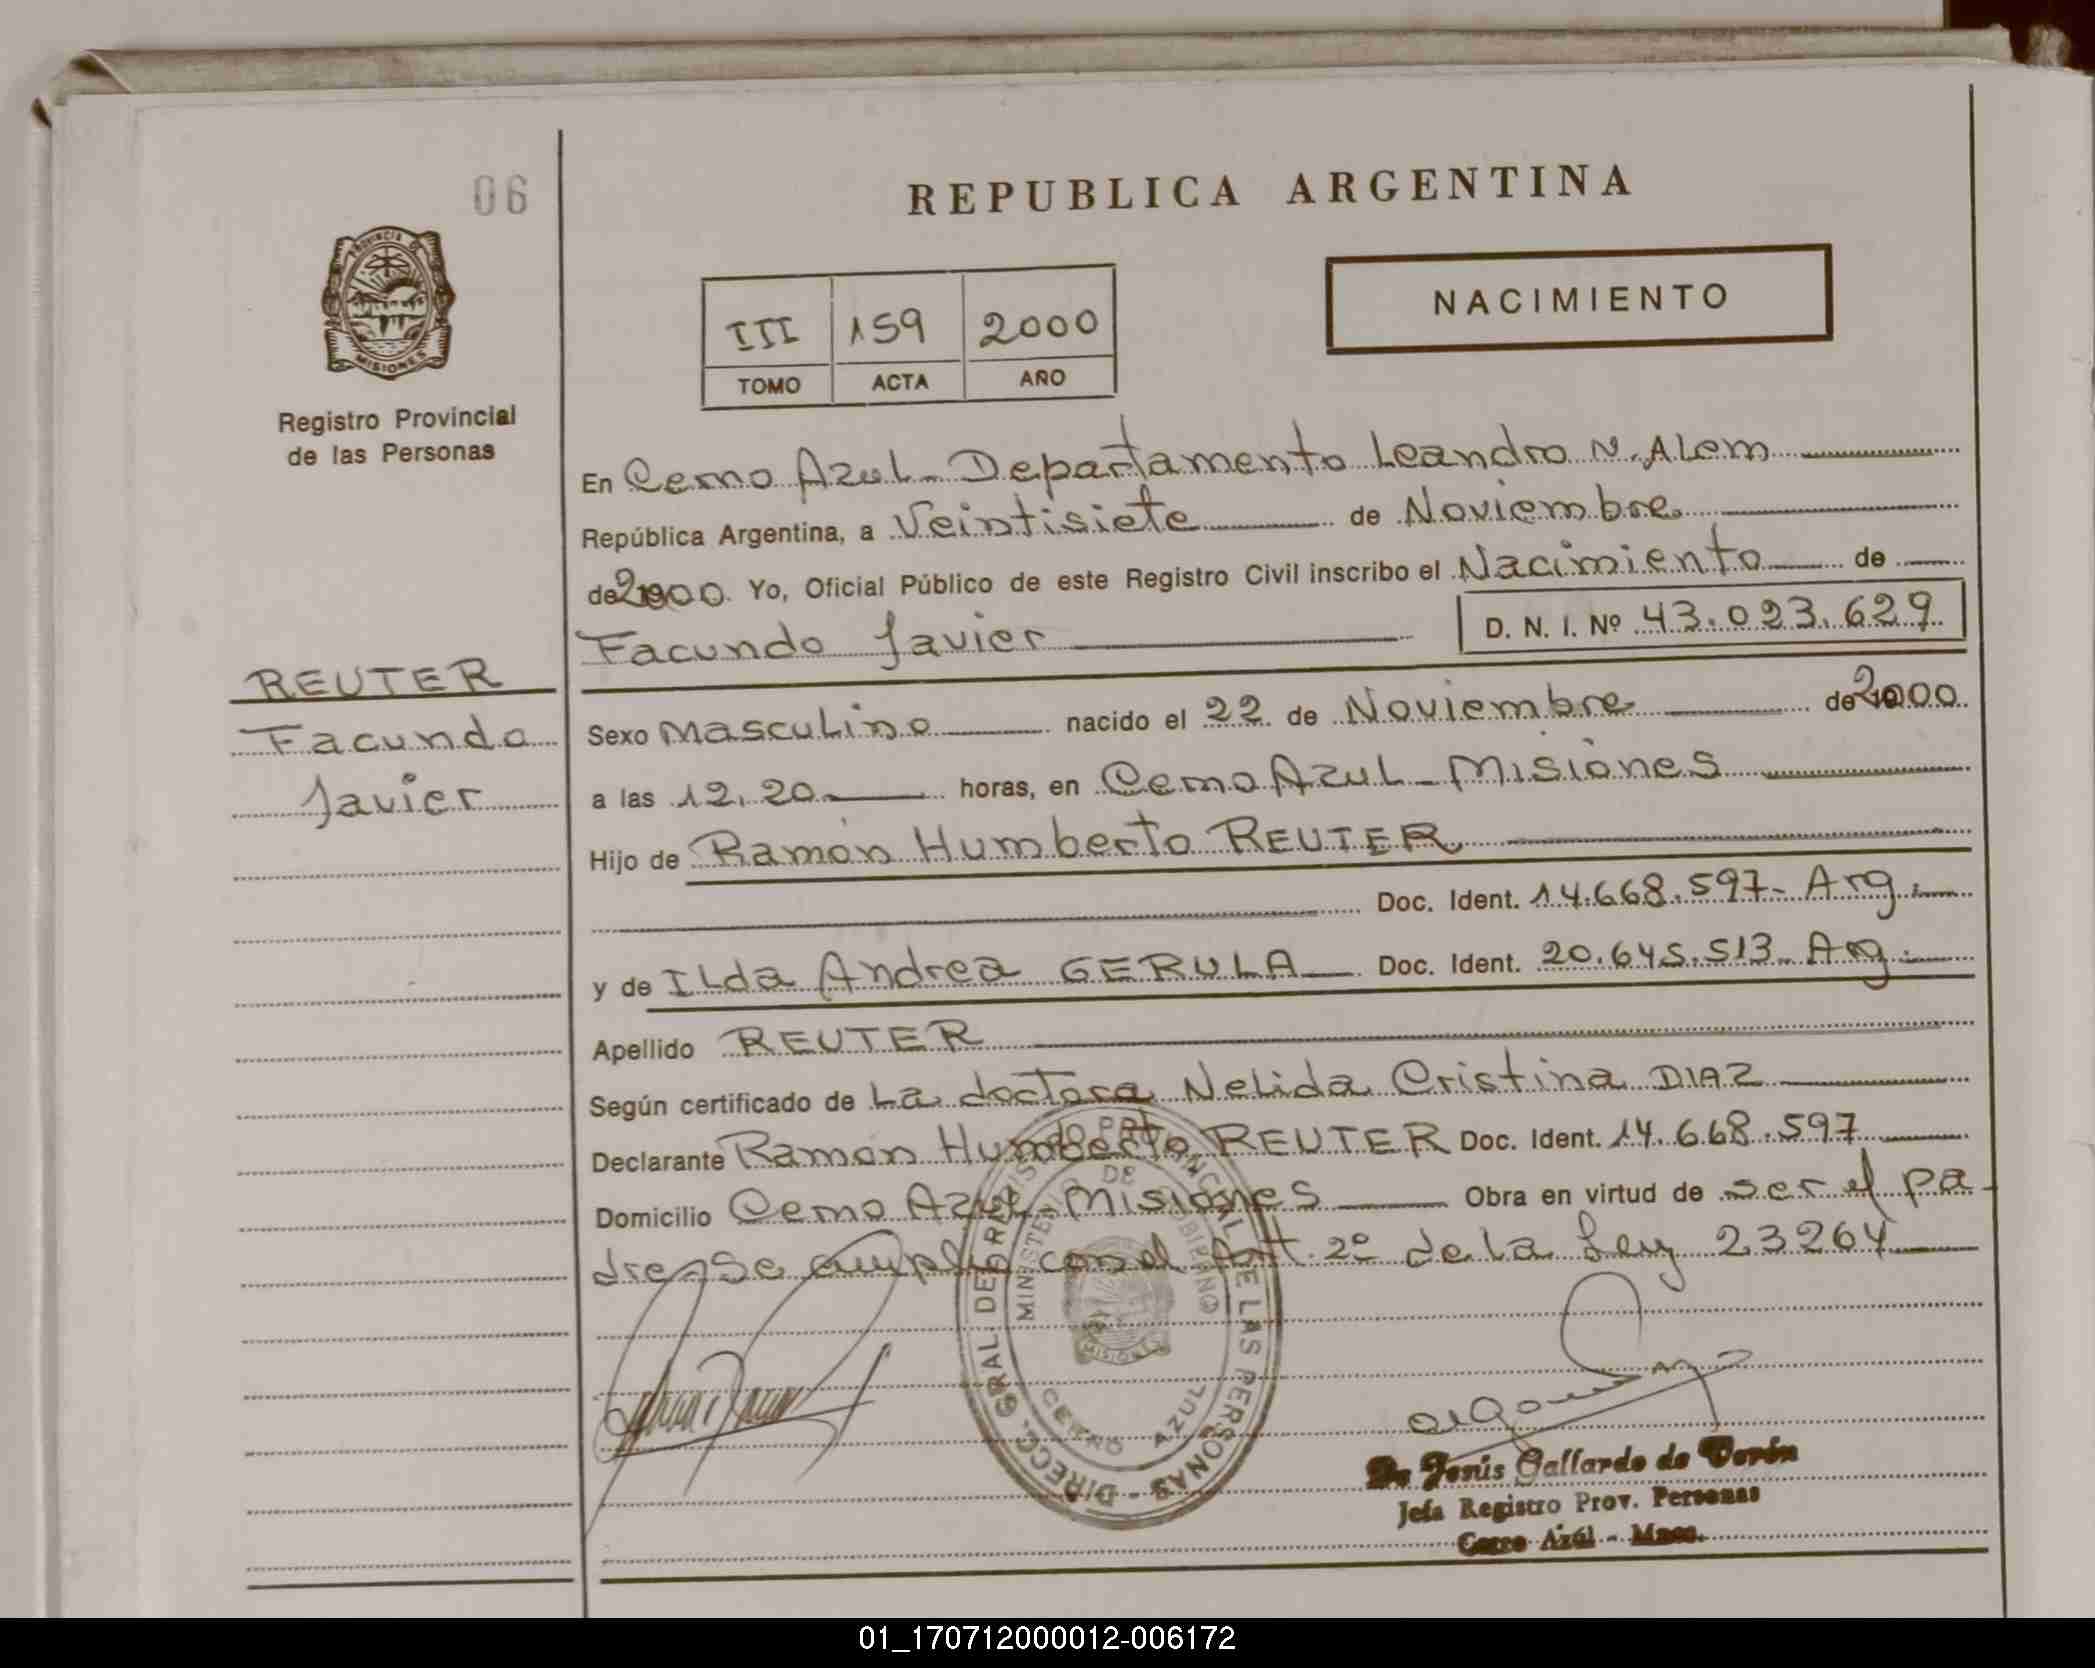 06
REPUBLICA ARGENTINA
PROVINCIA DE
MISIONES
NACIMIENTO
III 159 2000
TOMO ACTA AÑO
Registro Provincial
de las Personas
En Cerro Azul - Departamento Leandro N. Alem
República Argentina, a Veintisiete de Noviembre
de 2000. Yo, Oficial Público de este Registro Civil inscribo el Nacimiento de
Facundo Javier D. N. I. Nº 43.023.629
REUTER
Facundo
Javier
Sexo Masculino nacido el 22 de Noviembre de 2000
a las 12,20 horas, en Cerro Azul - Misiones
Hijo de Ramón Humberto REUTER
Doc. Ident. 14.668.597- Arg.
y de Ilda Andrea GERULA Doc. Ident. 20.645.513- Arg.
Apellido REUTER
Según certificado de La doctora Nelida Cristina DIAZ
Declarante Ramón Humberto REUTER Doc. Ident. 14.668.597
Domicilio Cerro Azul - Misiones Obra en virtud de ser el pa-
dre - Se cumple con el Art. 2º de la Ley 23264
DIRECC. GRAL. DEL REGISTRO PROVINCIAL DE LAS PERSONAS -
MINISTERIO DE GOBIERNO
MISIONES
CERRO AZUL
Jesús Gallardo de Verón
Jefa Registro Prov. Personas
Cerro Azúl - Mnes.
01_170712000012-006172